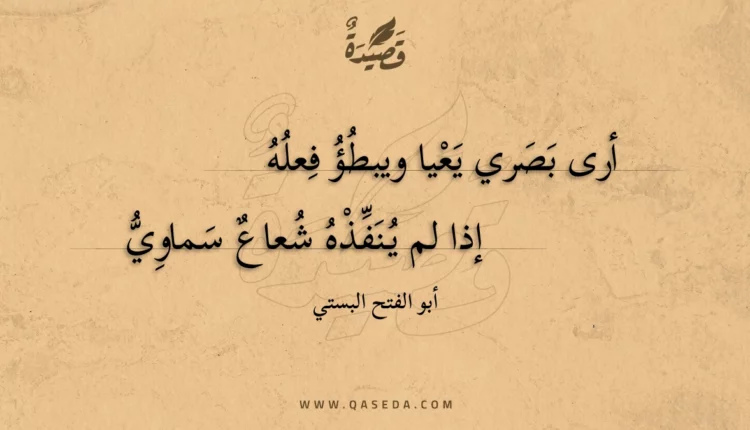 قَصِيدَةٌ
أرى بَصَري يَعْيا ويبطُؤُ فِعلُهُ
إذا لم يُنَفِّذْهُ شُعاعٌ سَماوِيُّ
أبو الفتح البستي
WWW.QASEDA.COM